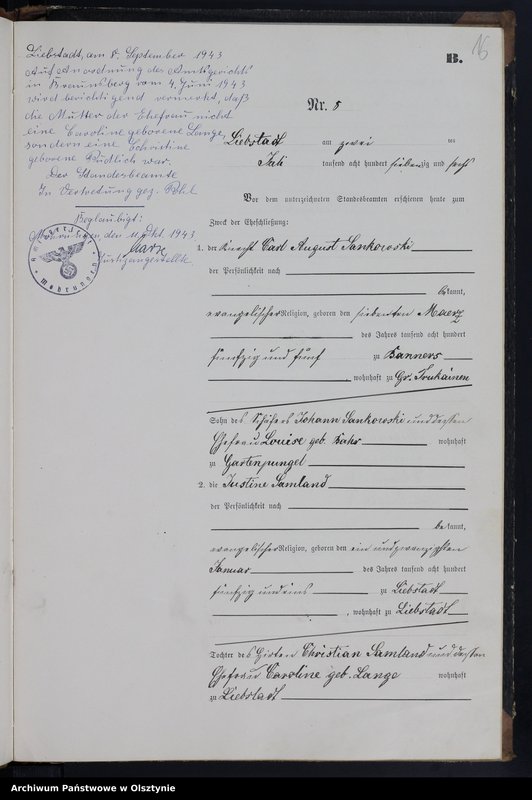 16
B.
Liebstadt, am 8. September 1943
Auf Anordnung des Amtsgerichts
in Braunsberg vom 4. Juni 1943
wird berichtigend vermerkt, daß
die Mutter der Ehefrau nicht
eine Caroline geborene Lange,
sondern eine Christine
geborene war.
Der Standesbeamte
In Vertretung gez. Pohl
Beglaubigt:
Mohrungen, den 11. Okt. 1943
Justizangestellte
Amtsgericht Mohrungen
Nr. 8
Liebstadt am zwei ten
Juli tausend acht hundert siebenzig und sechs
Vor dem unterzeichneten Standesbeamten erschienen heute zum
Zweck der Eheschließung:
1. der Knecht Carl August Sankowski
der Persönlichkeit nach
bekannt,
evangelischer Religion, geboren den siebenten Maerz
des Jahres tausend acht hundert
fünfzig und fünf zu Banners
, wohnhaft zu Gr. Trukainen
Sohn des Schäfers Johann Sankowski und dessen
Ehefrau Louise geb. Bahr wohnhaft
zu Gartenpungel
2. die Justine Samland
der Persönlichkeit nach
bekannt,
evangelischer Religion, geboren den ein und zwanzigsten
Januar des Jahres tausend acht hundert
fünfzig und eins zu Liebstadt
, wohnhaft zu Liebstadt
Tochter des Hirten Christian Samland und dessen
Ehefrau Caroline geb. Lange wohnhaft
zu Liebstadt
Archiwum Państwowe w Olsztynie